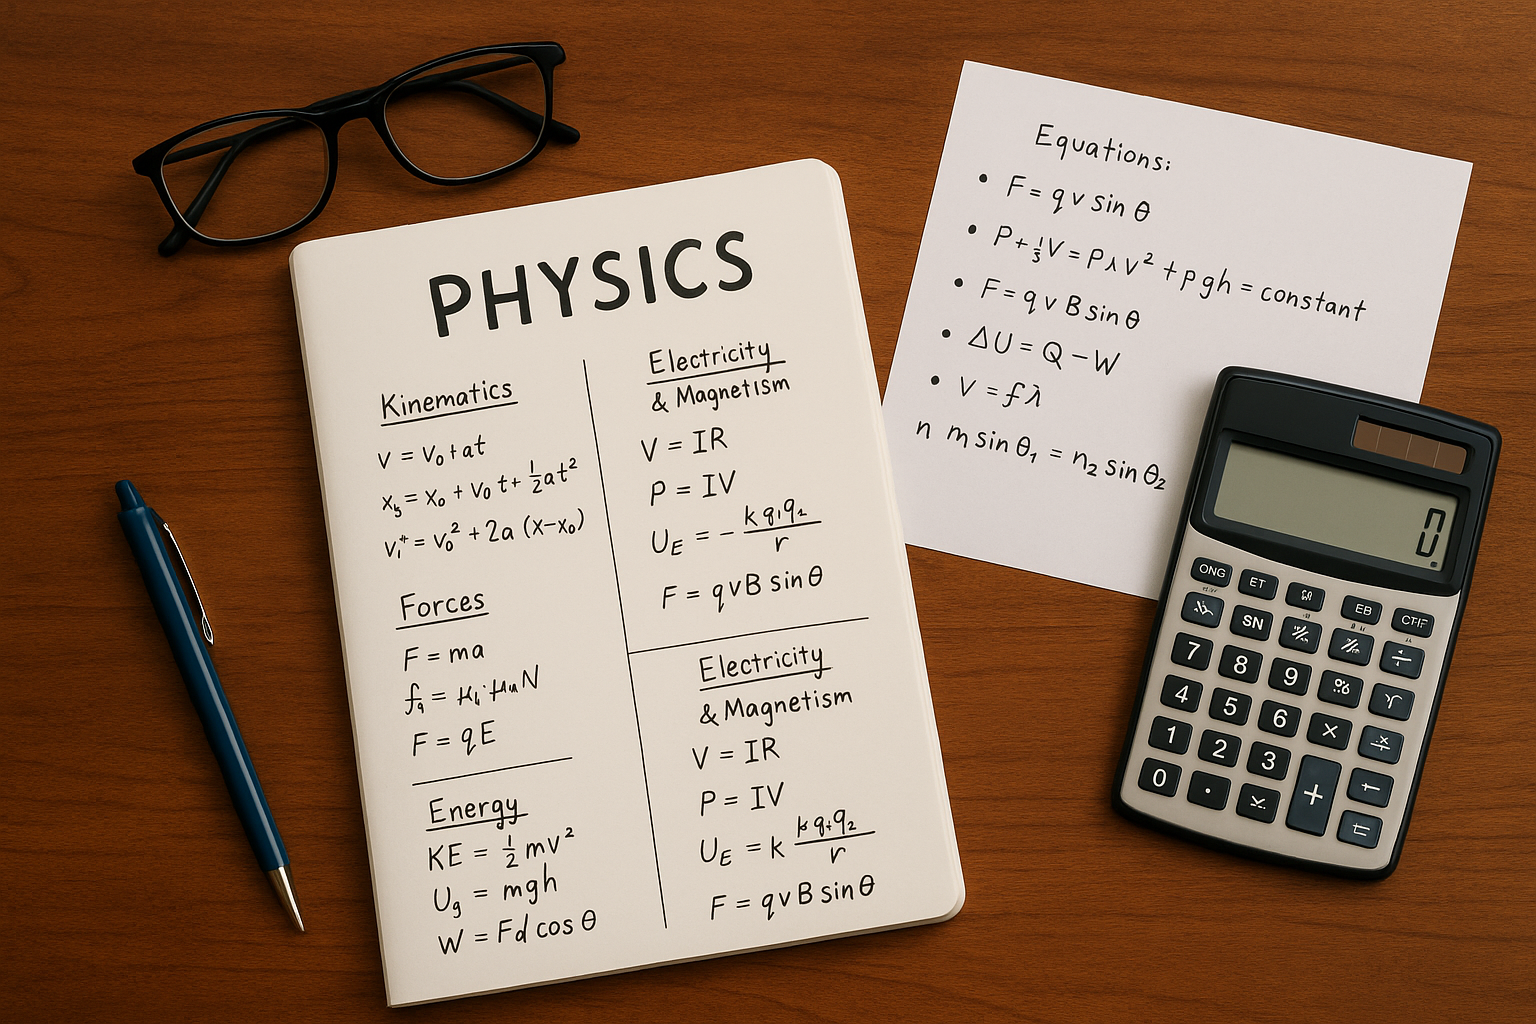 PHYSICS
Kinematics
v = v₀ + at
x₅ = x₀ + v₀ t + ½at²
= v₀² + 2a (x−x₀)
Forces
F = ma
F = qE
Energy
KE = ½ mv²
Ug = mgh
W = Fd cos θ
Electricity
& Magnetism
V = IR
P = IV
U_E = − k q₁q₂ / r
F = qvB sin θ
Electricity
& Magnetism
V = IR
P = IV
U_E = k k q₁q₂ / r
F = qvB sin θ
Equations:
• F = q v sin θ
• P + ⅓V = PλV² + pgh = constant
• F = q v B sin θ
• ΔU = Q − W
• V = fλ
n m sin θ₁ = n₂ sin θ₂
0.
ONG ET EB
SN
7 8 9 %
4 5 6 ×
1 2 3
0 . +